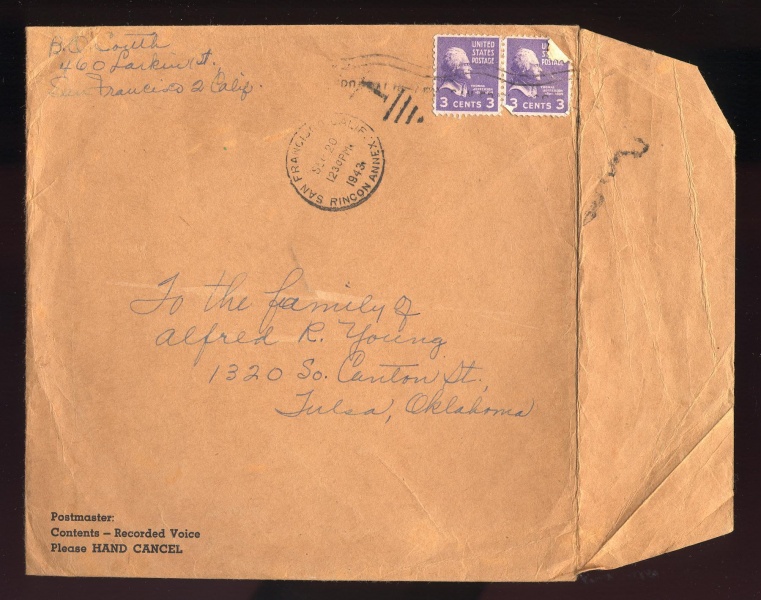 460 Larkin St.
San Francisco 2 Calif.
UNITED
STATES
POSTAGE
3 CENTS 3
STATES
POSTAGE
3 CENTS 3
SAN FRANCISCO CALIF.
SEP 20
1230PM
1943
RINCON ANNEX
To the family of
Alfred R. Young
1320 So. Canton St.,
Tulsa, Oklahoma
Postmaster:
Contents – Recorded Voice
Please HAND CANCEL